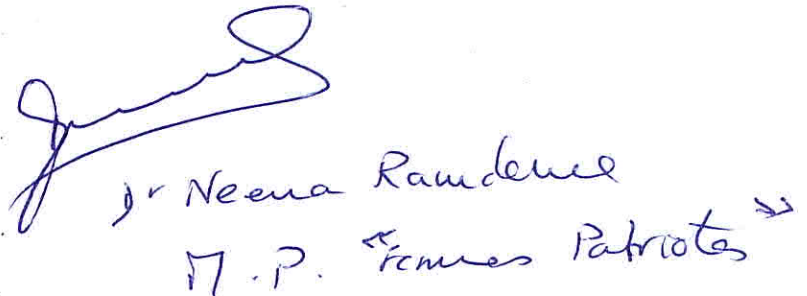 Dr Neena Ramdenee
M.P. "Femmes Patriotes"